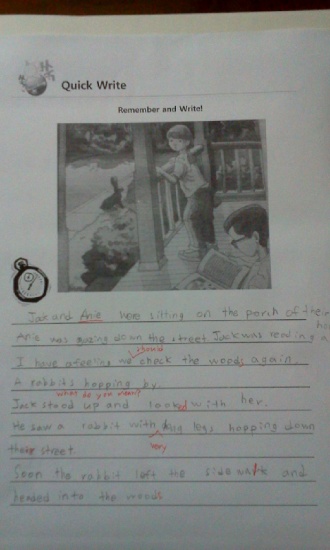 Quick Write
Remember and Write!
Jak and Anie here sitting on the porsh of their
Anie was gazing down the street Jack was reading a
should
I have afeeling we check the woods again.
A rabbits hopping by.
what do you mean?
Jack stood up and looked with her.
He saw a rabbit with long legs hopping down
very
their street.
Soon the rabbit left the sidewalk and
headed into the woods